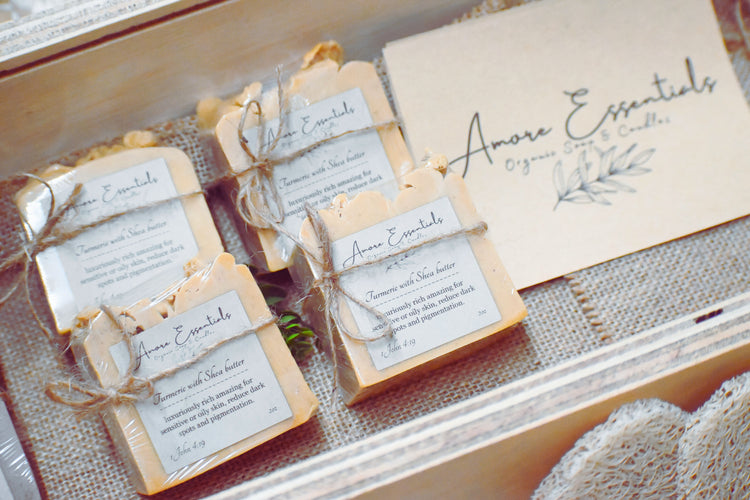 Amore Essentials
Organic Soap & Candles
Amore Essentials
Turmeric with Shea butter
luxuriously rich amazing for
sensitive or oily skin, reduce dark
spots and pigmentation.
Amore Essentials
Turmeric with Shea butter
luxuriously rich amazing for
sensitive or oily skin,
Amore Essentials
Organic Soap & Candles
Turmeric with Shea butter
luxuriously rich amazing for
sensitive or oily skin, reduce dark
spots and pigmentation.
2oz
1 John 4:19
Amore Essentials
Organic Soap & Candles
Turmeric with Shea butter
luxuriously rich amazing for
sensitive or oily skin, reduce dark
spots and pigmentation.
2oz
1 John 4:19